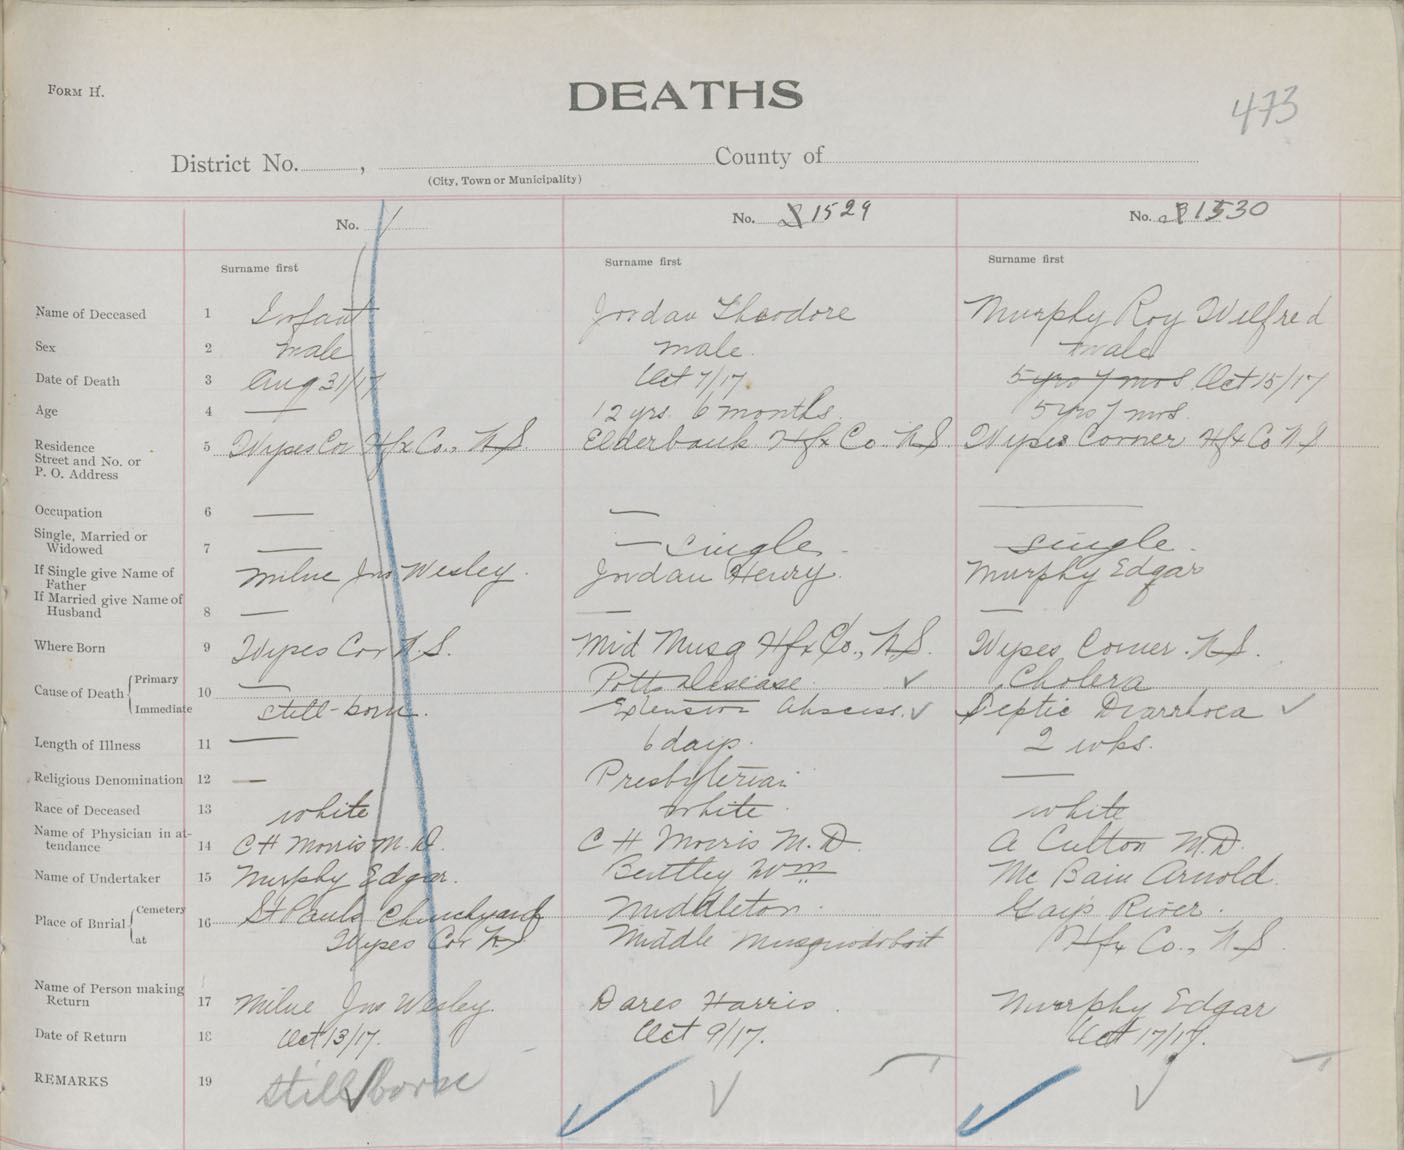 FORM H.
DEATHS
473
District No. , County of
(City, Town or Municipality)
No. No. 1529 No. 1530
Surname first Surname first Surname first
Name of Deceased 1 Infant Jordan Theodore Murphy Roy Wilfred
Sex 2 male male. male
Date of Death 3 Aug 31/17 Oct 7/17. 5 yrs 7 mos Oct 15/17
Age 4 — 12 yrs. 6 months. 5 yrs 7 mos.
Residence
Street and No. or
P. O. Address
5 Wyses Cor Hfx Co., N.S. Elderbank Hfx Co. N.S. Wyses Corner Hfx Co N S
Occupation 6 — — —
Single, Married or
Widowed
7 — — single. single.
If Single give Name of
Father
Milne Jno Wesley. Jordan Henry. Murphy Edgar
If Married give Name of
Husband
8 — — —
Where Born 9 Wyses Cor N.S. Mid Musq Hfx Co., N.S. Wyses Corner. N.S.
Cause of Death { Primary 10 — Potts Disease. Cholera
Immediate still-born. Extension Abscess. Septic Diarrhoea
Length of Illness 11 — 6 days. 2 wks.
Religious Denomination 12 — Presbyterian —
Race of Deceased 13 white white. white
Name of Physician in at-
tendance
14 C H Morris M.D. C H Morris M.D. A Culton M.D.
Name of Undertaker 15 Murphy Edgar. Bentley Wm Mc Bain Arnold.
Place of Burial { Cemetery 16 St Pauls Churchyard Middleton. Gays River.
at Wyses Cor N S Middle Musquodoboit Hfx Co., N S.
Name of Person making
Return
17 Milne Jno Wesley. Dares Harris. Murphy Edgar
Date of Return 18 Oct 13/17. Oct 9/17. Oct 17/17.
REMARKS 19 still born